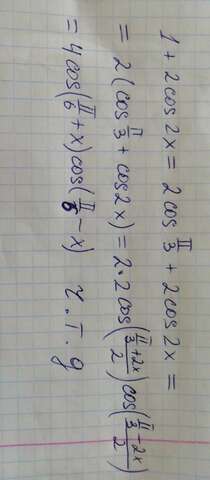 1 + 2cos2x = 2cos π/3 + 2cos2x =
= 2(cos π/3 + cos2x) = 2·2cos((π/3+2x)/2)cos((π/3-2x)/2)
= 4cos(π/6 + x)cos(π/6 - x) ч.т.д